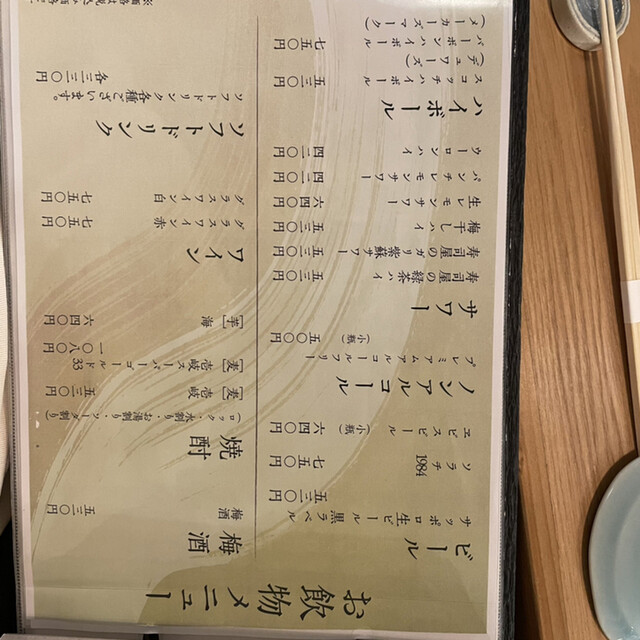 お飲物メニュー
ビール
サッポロ生ビール黒ラベル
五三〇円
ソラチ1984 七五〇円
ヱビスビール（小瓶） 六四〇円
ノンアルコール
プレミアムアルコールフリー
（小瓶） 五〇〇円
サワー
寿司屋の緑茶ハイ 五三〇円
寿司屋のガリ紫蘇サワー 五三〇円
梅干しハイ 五三〇円
生レモンサワー 六四〇円
パンチレモンサワー 四二〇円
ウーロンハイ 四二〇円
ハイボール
スコッチハイボール 五三〇円
（デュワーズ）
バーボンハイボール 七五〇円
（メーカーズマーク）
梅酒
梅酒 五三〇円
焼酎
（ロック・水割り・お湯割り・ソーダ割り）
［麦］壱岐 五三〇円
［麦］壱岐スーパーゴールド33
一〇八〇円
［芋］海 六四〇円
ワイン
グラスワイン赤 七五〇円
グラスワイン白 七五〇円
ソフトドリンク
ソフトドリンク各種ございます。
各三二〇円